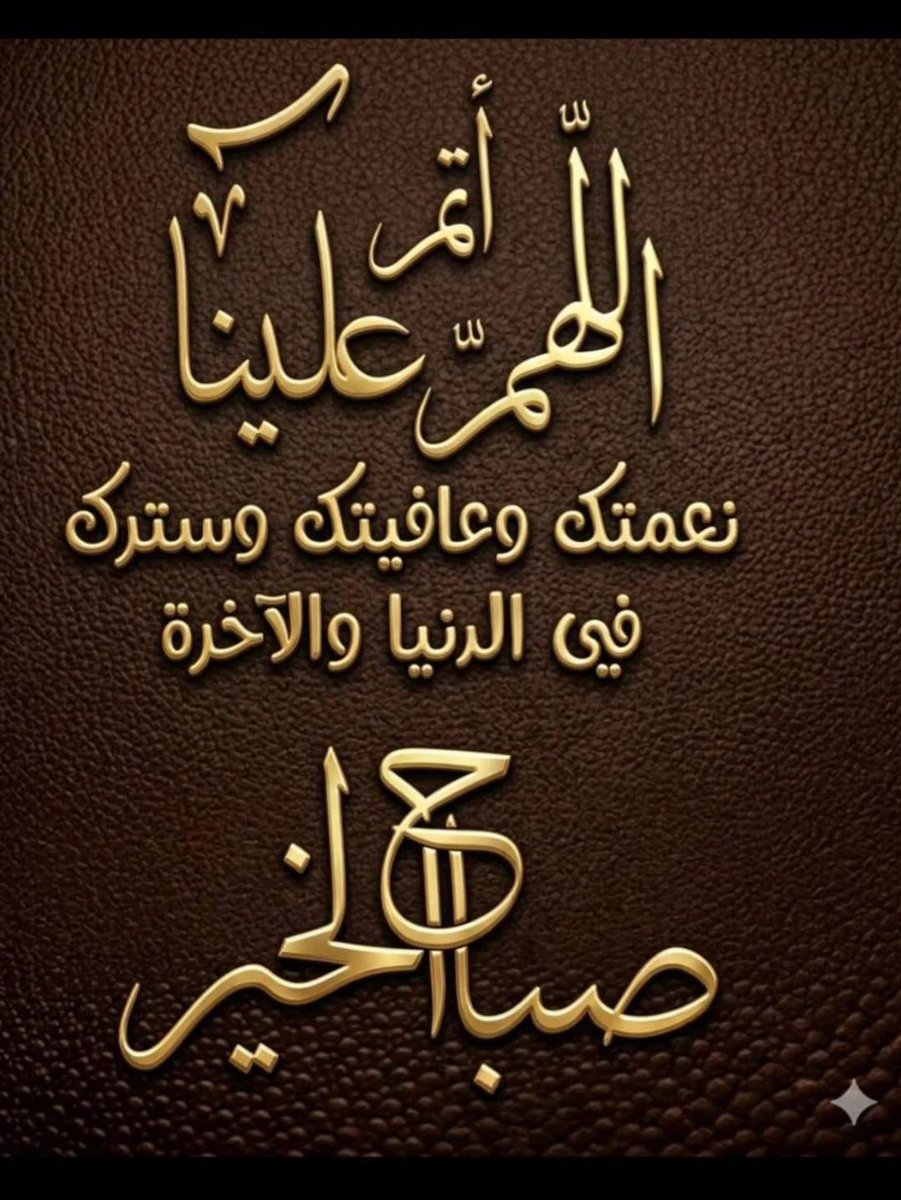 اللّهمّ أتمر علينا
نعمتك وعافيتك وسترك
في الدنيا والآخرة
صباح الخير